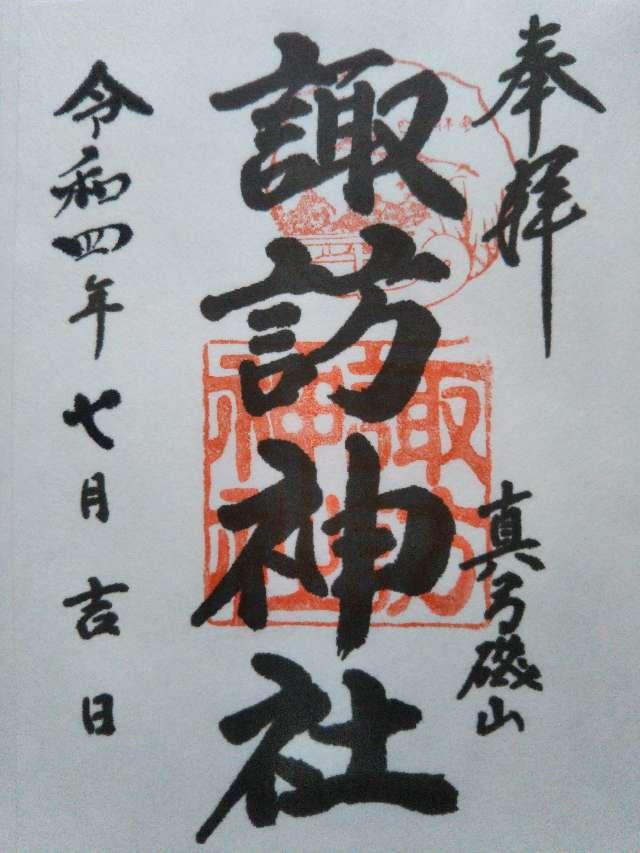 奉拝
真弓磯山
諏訪神社
諏訪
神社
令和四年七月吉日